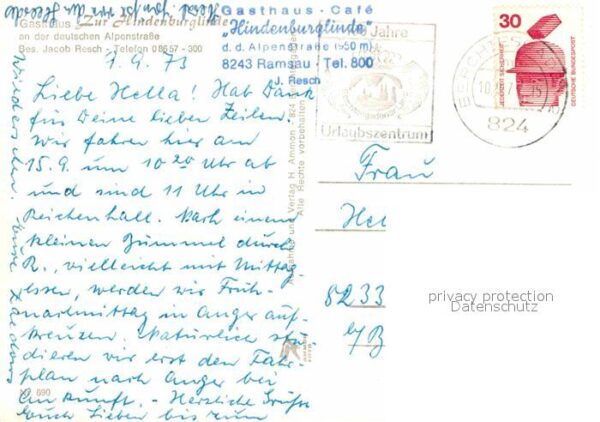 Gasthaus "Zur Hindenburglinde"
an der deutschen Alpenstraße
Bes. Jacob Resch - Telefon 08657 - 300
Gasthaus - Café
„Hindenburglinde"
d. d. Alpenstraße (850 m)
8243 Ramsau Tel. 800
J. Resch
7.9.73
Liebe Hella! Hab Dank
für Deine lieben Zeilen.
Wir fahren hier am
15.9. um 10 20 Uhr ab
und sind 11 Uhr in
Reichenhall. Nach einem
kleinen Bummel durch
R., vielleicht mit Mittag
essen, werden wir Früh-
nachmittag in Anger auf-
kreuzen. Natürlich stu-
dieren wir erst den Fahr-
plan nach Anger bei
Ankunft. - Herzliche Grüße
Euch Lieben bis zum
Wiedersehen.
Nr. 690
Verlag H. Ammon
Alle Rechte vorbehalten
Jahre
Urlaubszentrum
BERCHTESGADEN
824
30
JEDERZEIT SICHERHEIT
DEUTSCHE BUNDESPOST
Frau
Hel
8233
privacy protection
Datenschutz